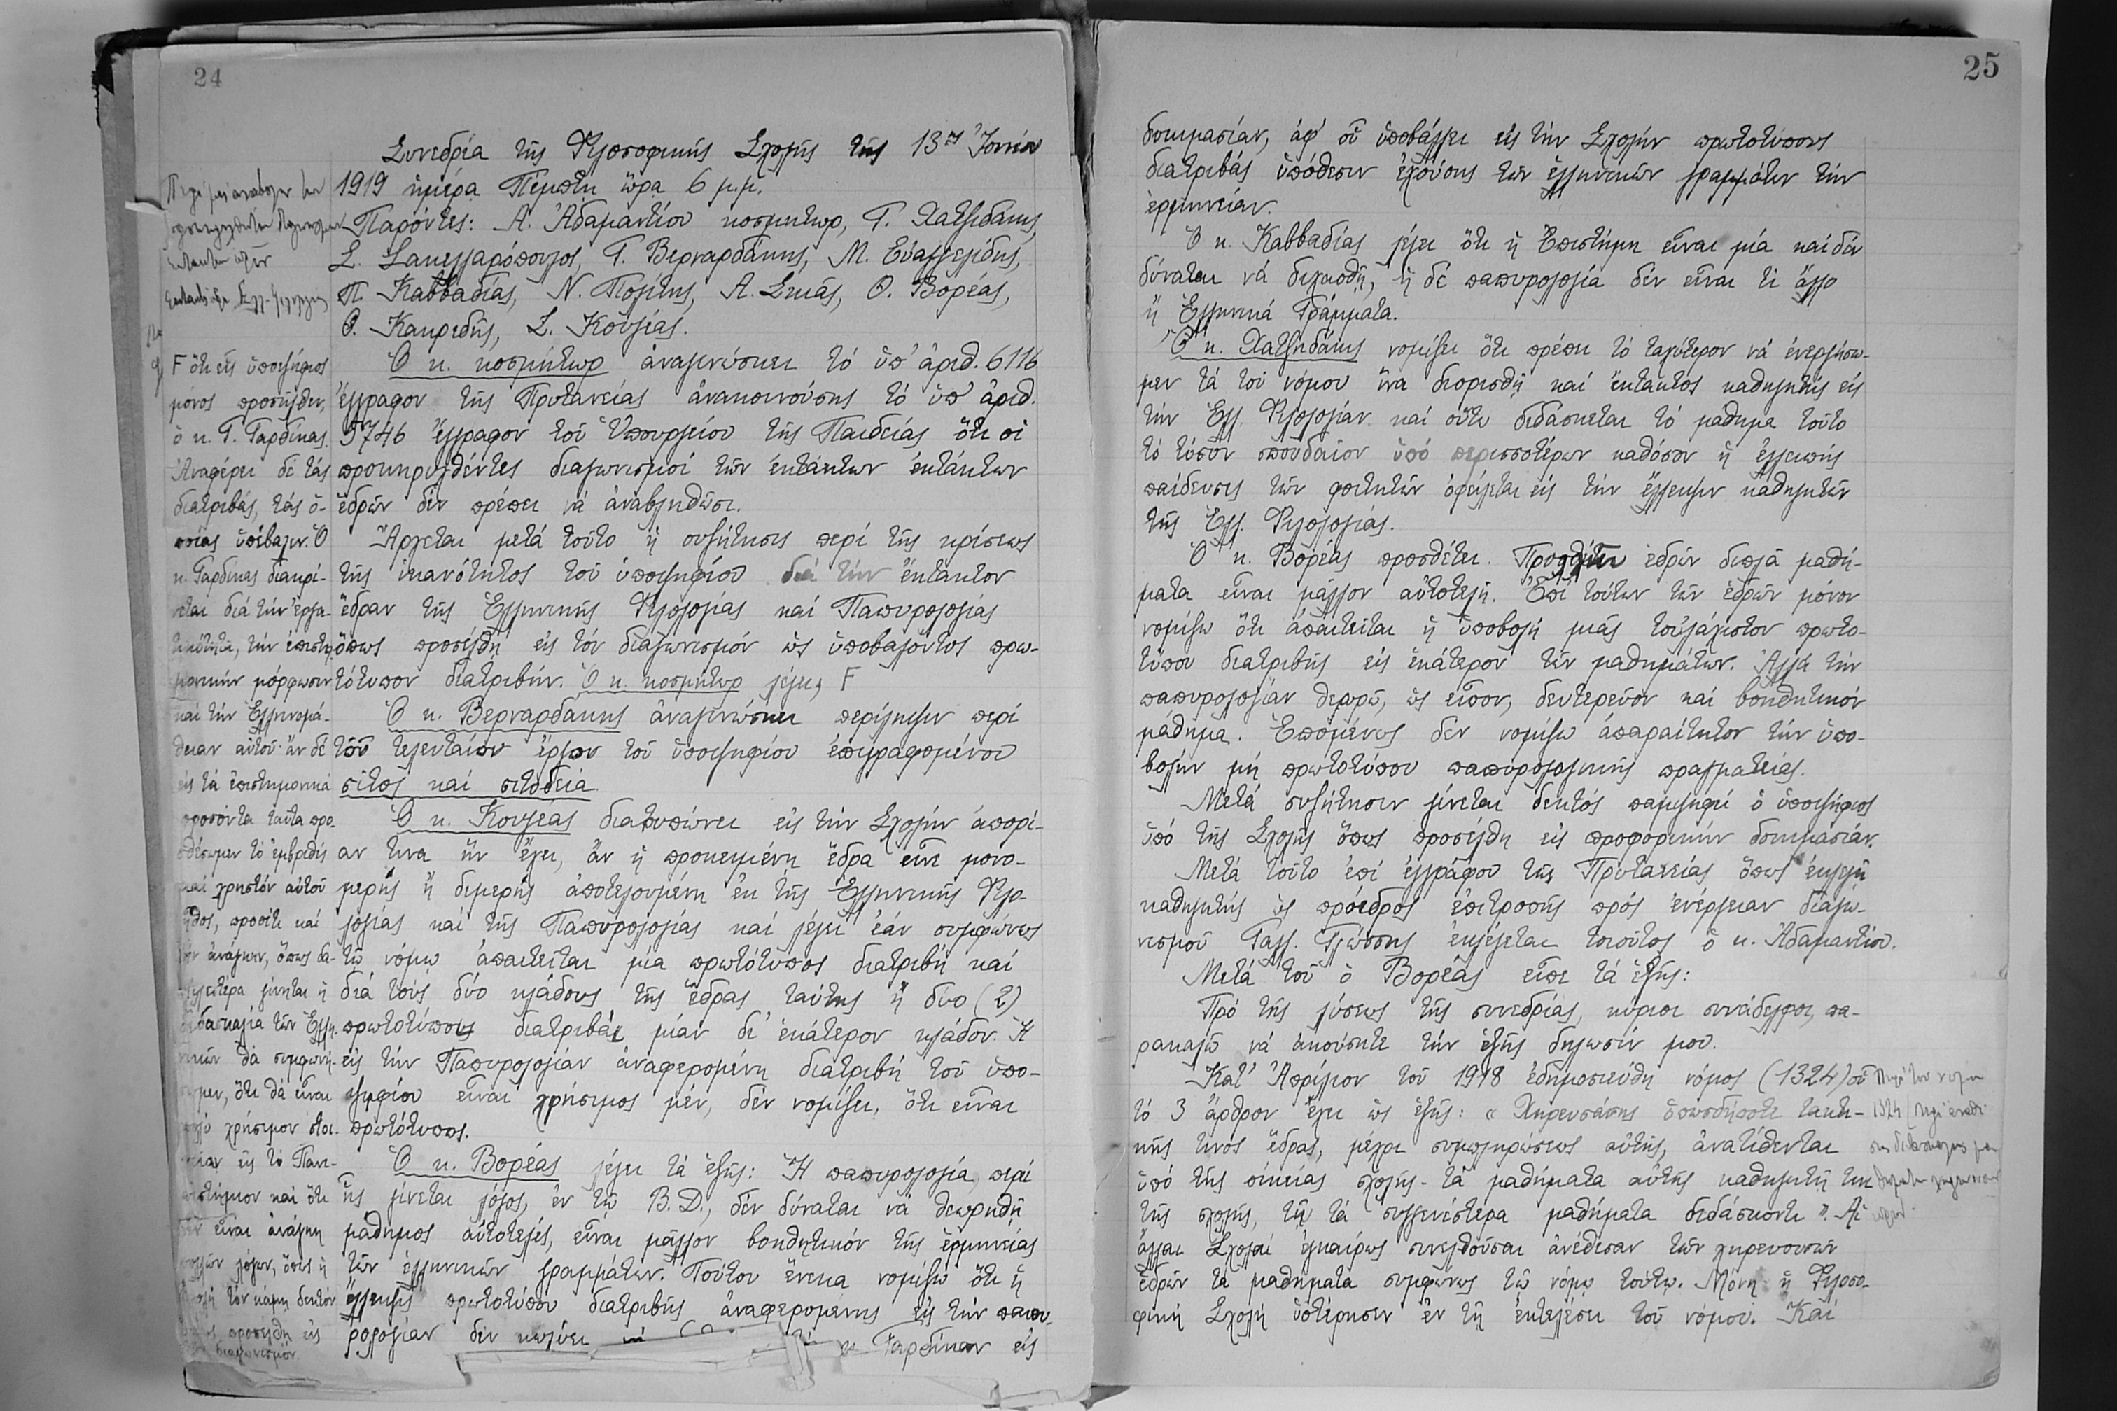 24
Συνεδρία τῆς Φιλοσοφικῆς Σχολῆς τῆς 13ης Ἰουνίου
1919 ἡμέρα Πέμπτη ὥρα 6 μ.μ.
Παρόντες: Α. Ἀδαμαντίου κοσμήτωρ, Γ. Χατζιδάκις,
Σ. Σακελλαρόπουλος, Γ. Βερναρδάκης, Μ. Εὐαγγελίδης,
Π. Καββαδίας, Ν. Πολίτης, Α. Σκιᾶς, Θ. Βορέας,
Θ. Κακριδῆς, Σ. Κουγέας.
Ὁ κ. κοσμήτωρ ἀναγινώσκει τό ὑπ' ἀριθ. 6116
ἔγγραφον τῆς Πρυτανείας ἀνακοινούσης τό ὑπ' ἀριθ.
5746 ἔγγραφον τοῦ Ὑπουργείου τῆς Παιδείας ὅτι οἱ
προκηρυχθέντες διαγωνισμοί τῶν ἐκτάκτων ἐκτάκτων
ἑδρῶν δέν πρέπει νά ἀναβληθῶσι.
Ἄρχεται μετά τοῦτο ἡ συζήτησις περί τῆς κρίσεως
τῆς ἱκανότητος τοῦ ὑποψηφίου διά τήν ἔκτακτον
ἕδραν τῆς Ἑλληνικῆς Φιλολογίας καί Παπυρολογίας
ὅπως προσέλθῃ εἰς τόν διαγωνισμόν ὡς ὑποβαλόντος πρω-
τότυπον διατριβήν. Ὁ κ. κοσμήτωρ λέγει, F
Ὁ κ. Βερναρδάκης ἀναγινώσκει περίληψιν περί
τοῦ τελευταίου ἔργου τοῦ ὑποψηφίου ἐπιγραφομένου
σῖτος καί σιτοδεία.
Ὁ κ. Κουγέας διατυπώνει εἰς τήν Σχολήν ἀπορί-
αν τινα ἥν ἔχει, ἄν ἡ προκειμένη ἕδρα εἶνε μονο-
μερής ἤ διμερής ἀποτελουμένη ἐκ τῆς Ἑλληνικῆς Φιλο-
λογίας καί τῆς Παπυρολογίας καί λέγει ἐάν συμφώνως
τῷ νόμῳ ἀπαιτεῖται μία πρωτότυπος διατριβή καί
διά τούς δύο κλάδους τῆς ἕδρας ταύτης ἤ δύο (2)
πρωτοτύπους διατριβάς μίαν δι' ἑκάτερον κλάδον. Ἡ
εἰς τήν Παπυρολογίαν ἀναφερομένη διατριβή τοῦ ὑπο-
ψηφίου εἶναι χρήσιμος μέν, δέν νομίζει, ὅτι εἶναι
πρωτότυπος.
Ὁ κ. Βορέας λέγει τά ἑξῆς: Ἡ παπυρολογία, περί
ἧς γίνεται λόγος, ἐν τῷ Β.Δ., δέν δύναται νά θεωρηθῇ
μάθημα αὐτοτελές, εἶναι μᾶλλον βοηθητικόν τῆς ἑρμηνείας
τῶν ἑλληνικῶν γραμμάτων. Τούτου ἕνεκα νομίζω ὅτι ἡ
ἔλλειψις πρωτοτύπου διατριβῆς ἀναφερομένης εἰς τήν παπυ-
ρολογίαν δέν κωλύει Γαρδίκαν εἰς
F ὅτι εἷς ὑποψήφιος
μόνος προσῆλθεν,
ὁ κ. Γ. Γαρδίκας.
Ἀναφέρει δέ τάς
διατριβάς, τάς ὁ-
ποίας ὑπέβαλεν. Ὁ
κ. Γαρδίκας διακρί-
νεται διά τήν ἐργα-
τικότητα, τήν ἐπιστη-
μονικήν μόρφωσιν
καί τήν Ἑλληνομά-
θειαν αὐτοῦ· ἄν δέ
εἰς τά ἐπιστημονικά
προσόντα ταῦτα προ-
σθέσωμεν τό ἐμβριθές
καί χρηστόν αὐτοῦ
ἦθος, προσέτι καί
τήν ἀνάγκην, ὅπως
γίνηται ἡ
διδασκαλία τῶν Ἑλλη-
νικῶν θά συμφωνή-
σωμεν, ὅτι θά εἶναι
πολύ χρήσιμον στοι-
χεῖον εἰς τό Πανε-
πιστήμιον καί ὅτι
δέν εἶναι ἀνάγκη
πολλῶν λόγων, ὅπως ἡ
Σχολή τόν κάμῃ δεκτόν
ὅπως προσέλθῃ εἰς
διαγωνισμόν
25
δοκιμασίαν, ἀφ' οὗ ὑποβάλλει εἰς τήν Σχολήν πρωτοτύπους
διατριβάς ὑπόθεσιν ἐχούσας τῶν ἑλληνικῶν γραμμάτων τήν
ἑρμηνείαν.
Ὁ κ. Καββαδίας λέγει ὅτι ἡ Ἐπιστήμη εἶναι μία καί δέν
δύναται νά διχασθῇ, ἡ δέ παπυρολογία δέν εἶναι τι ἄλλο
ἤ Ἑλληνικά Γράμματα.
Ὁ κ. Χατζηδάκις νομίζει ὅτι πρέπει τό ταχύτερον νά ἐνεργήσω-
μεν τά τοῦ νόμου ἵνα διορισθῇ καί ἔκτακτος καθηγητής εἰς
τήν Ἑλλ. Φιλολογίαν καί οὕτω διδάσκεται τό μάθημα τοῦτο
τό τόσον σπουδαῖον ὑπό περισσοτέρων καθόσον ἡ ἐλλειπής
παίδευσις τῶν φοιτητῶν ὀφείλεται εἰς τήν ἔλλειψιν καθηγητῶν
τῆς Ἑλλ. Φιλολογίας.
Ὁ κ. Βορέας προσθέτει. ἑδρῶν διπλᾶ μαθή-
ματα εἶναι μᾶλλον αὐτοτελῆ. Ἐπί τούτων τῶν ἑδρῶν μόνον
νομίζω ὅτι ἀπαιτεῖται ἡ ὑποβολή μιᾶς τουλάχιστον πρωτο-
τύπου διατριβῆς εἰς ἑκάτερον τῶν μαθημάτων. Ἀλλά τήν
παπυρολογίαν θεωρῶ, ὡς εἶπον, δευτερεῦον καί βοηθητικόν
μάθημα. Ἑπομένως δέν νομίζω ἀπαραίτητον τήν ὑπο-
βολήν μή πρωτοτύπου παπυρολογικῆς πραγματείας.
Μετά συζήτησιν γίνεται δεκτός παμψηφεί ὁ ὑποψήφιος
ὑπό τῆς Σχολῆς ὅπως προσέλθῃ εἰς προφορικήν δοκιμασίαν.
Μετά τοῦτο ἐπί ἐγγράφου τῆς Πρυτανείας ὅπως ἐκλεγῇ
καθηγητής ὡς πρόεδρος ἐπιτροπῆς πρός ἐνέργειαν διαγω-
νισμοῦ Γαλλ. Γλώσσης ἐκλέγεται τοιοῦτος ὁ κ. Ἀδαμαντίου.
Μετά τοῦ ὁ Βορέας εἶπε τά ἑξῆς:
Πρό τῆς λύσεως τῆς συνεδρίας, κύριοι συνάδελφοι, πα-
ρακαλῶ νά ἀκούσητε τήν ἑξῆς δήλωσίν μου.
Κατ' Ἀπρίλιον τοῦ 1918 ἐδημοσιεύθη νόμος (1324) οὗ
τό 3 ἄρθρον ἔχει ὡς ἑξῆς: « Χηρευσάσης ὁπωσδήποτε τακτι-
κῆς τινός ἕδρας, μέχρι συμπληρώσεως αὐτῆς, ἀνατίθενται
ὑπό τῆς οἰκείας σχολῆς τά μαθήματα αὐτῆς καθηγητῇ τινι
τῆς σχολῆς, τῷ τά συγγενέστερα μαθήματα διδάσκοντι ». Αἱ
ἄλλαι Σχολαί ἐγκαίρως συνελθοῦσαι ἀνέθεσαν τῶν χηρευουσῶν
ἑδρῶν τά μαθήματα συμφώνως τῷ νόμῳ τούτῳ. Μόνη ἡ Φιλοσο-
φική Σχολή ὑστέρησεν ἐν τῇ ἐκτελέσει τοῦ νόμου. Καί